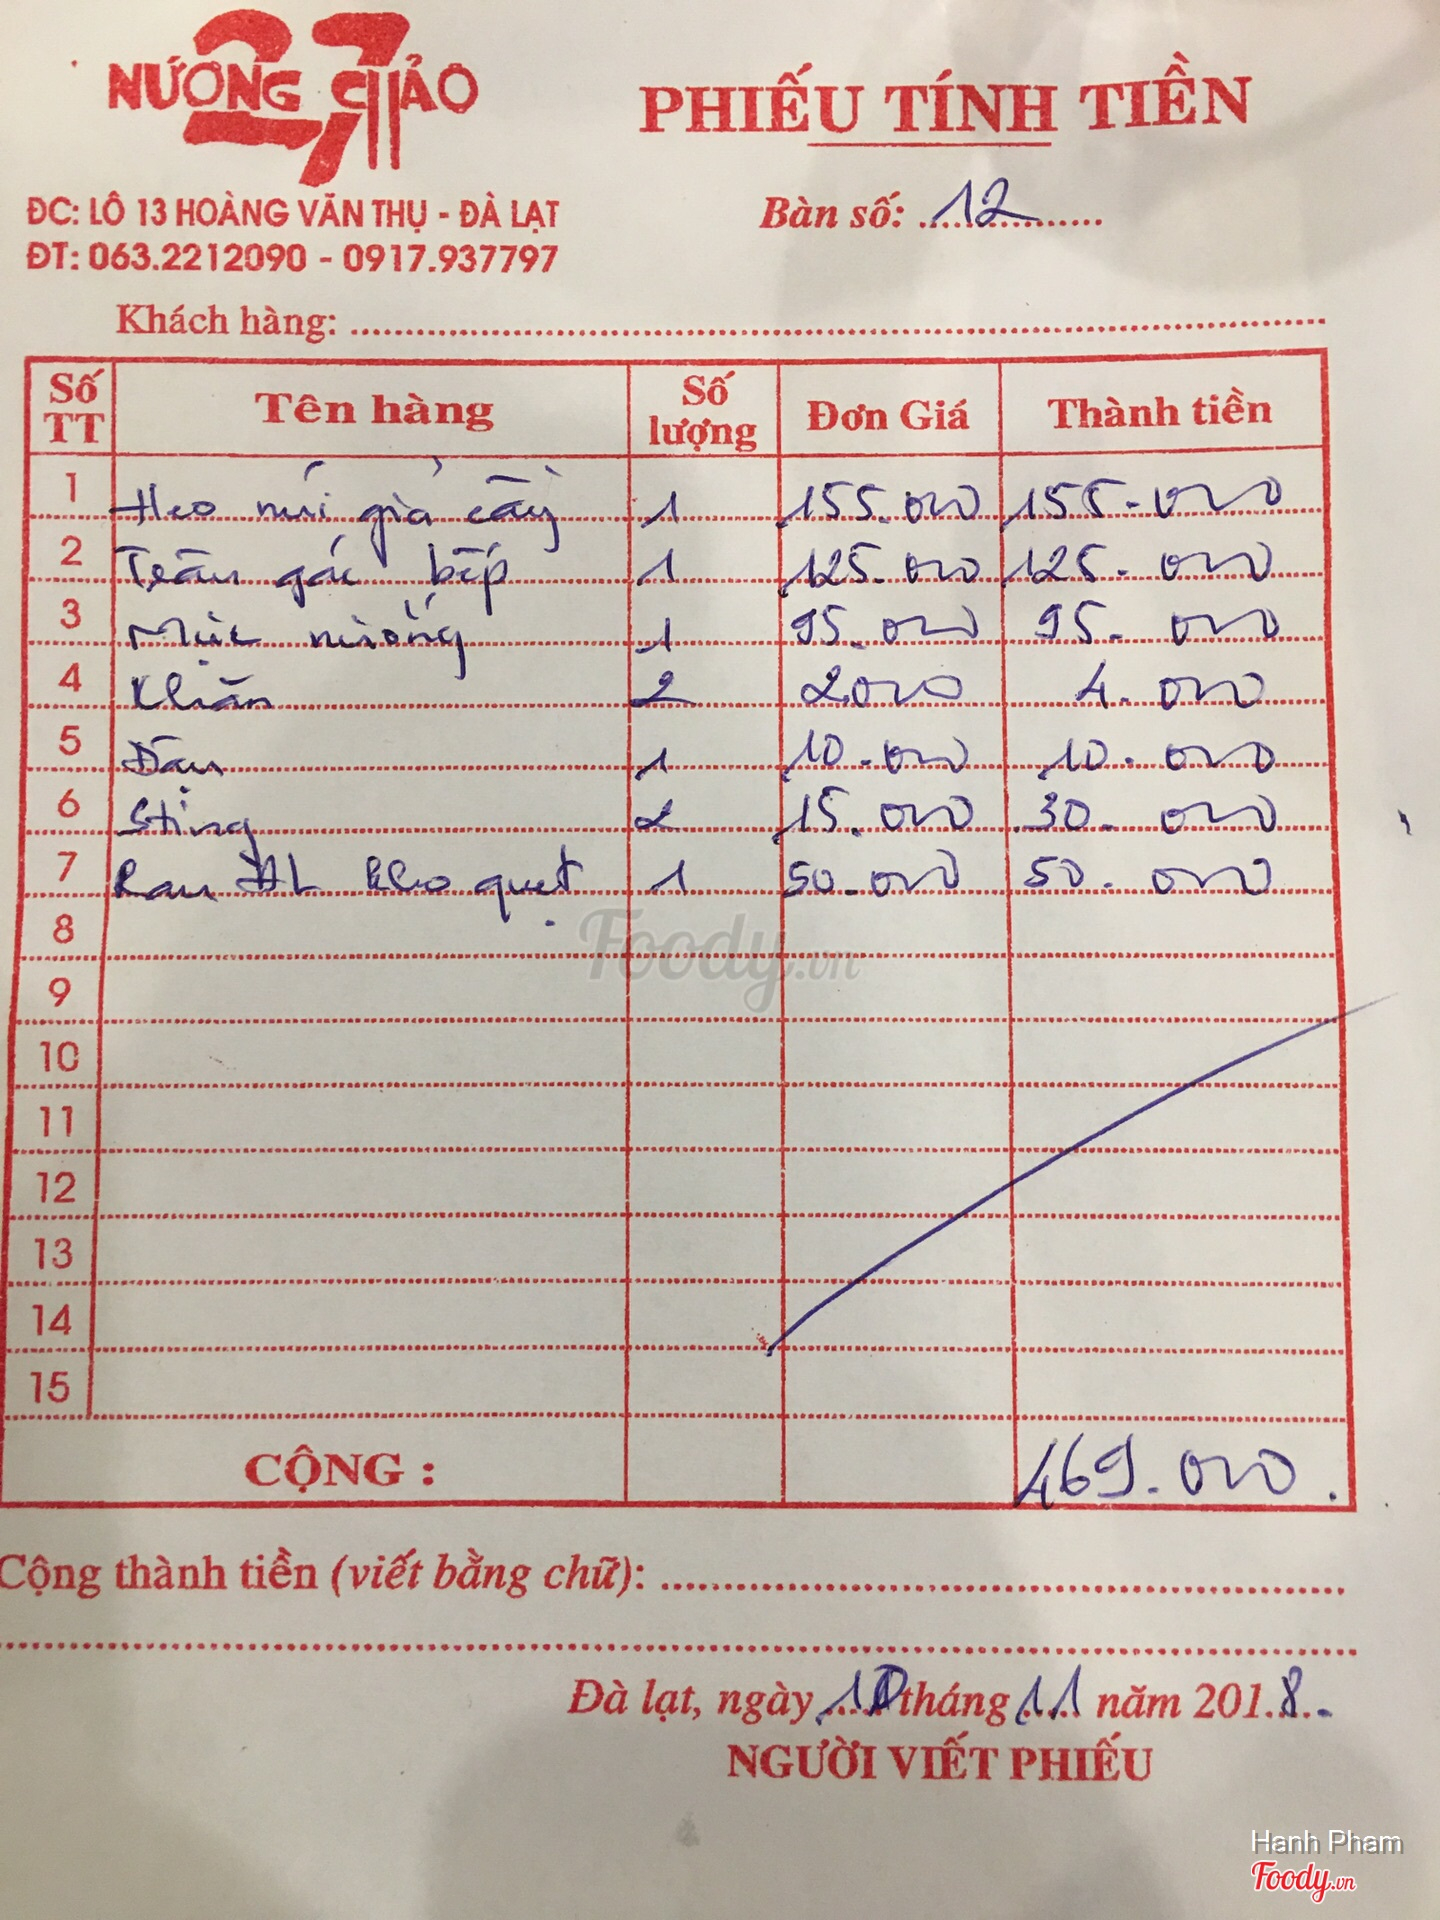 27
NƯỚNG CHẢO
PHIẾU TÍNH TIỀN
ĐC: LÔ 13 HOÀNG VĂN THỤ - ĐÀ LẠT
Bàn số: 12
ĐT: 063.2212090 - 0917.937797
Khách hàng:
Số TT Tên hàng Số lượng Đơn Giá Thành tiền
1 Heo núi giả cầy 1 155.000 155.000
2 Trâu gác bếp 1 125.000 125.000
3 Mực nướng 1 95.000 95.000
4 Khăn 2 2000 4.000
5 Đậu 1 10.000 10.000
6 Sting 2 15.000 30.000
7 Rau ĐL kho quẹt 1 50.000 50.000
8
9
10
11
12
13
14
15
CỘNG : 469.000.
Foody.vn
Cộng thành tiền (viết bằng chữ):
Đà lạt, ngày tháng 11 năm 2018
NGƯỜI VIẾT PHIẾU
Hanh Pham
Foody.vn